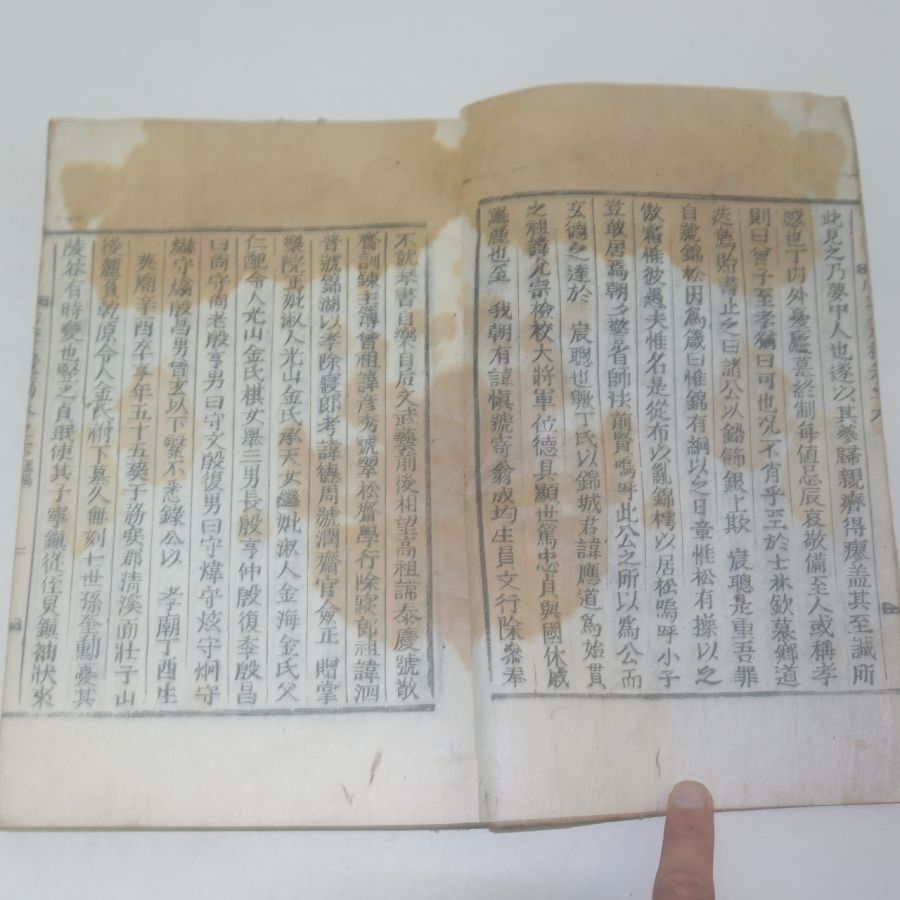 此見之乃夢中人也遂以其蔘歸親癠得瘳盖其至誠所
感也丁內外憂廬墓終制每値忌辰哀敬備至人或稱孝
則曰曾子至孝猶曰可也况不肖乎至於士林欽慕鄕道
薦貽書止之曰諸公以鉛飾銀上欺 宸聰是重吾罪
自號錦松因爲箴曰惟錦有絅以之日章惟松有操以之
傲霜惟彼愚夫惟名是從布以亂錦樗以居松嗚呼小子
豈敢居焉朝夕警省師法 前賢嗚呼此公之所以爲公而
玄德之達於 宸聰也歟丁氏以錦城君諱應道爲始貫
之祖諱允宗檢校大將軍位德具顯世篤忠貞與國休戚
麗也至 我朝有諱愼號寄翁成均生員文行除叅奉
不就琴書自樂自后文武藝前後相望高祖諱泰慶號敬
齋訓鍊主簿曾祖諱彦秀號翠松齋學行除寢郞祖諱泗
普號錦湖以孝除寢郞考諱德周號潤齋官僉正 贈掌
樂院正妣淑人光山金氏承天女繼妣淑人金海金氏父
仁配令人光山金氏棋女擧三男長殷亨仲殷復季殷昌
曰尚守尚老殷亨男曰守文殷復男曰守煒守炫守炯守
守爀殷昌男曾玄以下繁不悉錄公以 孝廟丁酉生
英廟辛酉卒享年五十五葬于務安郡淸溪面壯子山
後麓負乾原令人金氏祔下墓久無刻七世孫奎勳憂其
陵谷有時變也竪之貞珉使其子寧鎭從侄貝鎭袖狀來